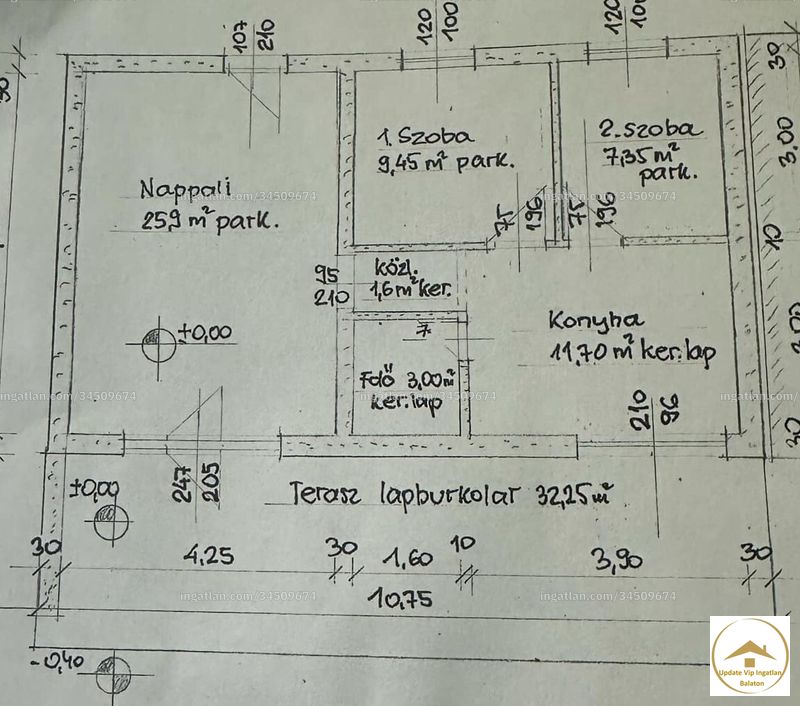 107
210
120
100
120
30
30
1. Szoba
9,45 m² park.
2. szoba
7,35 m²
park.
3,00
Nappali
25,9 m² park.
ingatlan.com/34509674
ingatlan.com/34509674
75
196
75
196
10
95
210
közl.
1,6 m² ker.
±0,00
7
Konyha
11,70 m² ker.lap
Fdő 3,00 m²
ker.lap
ingatlan.com/34509674
ingatlan.com/34509674
ingatlan.com/34509674
210
96
30
247
205
±0,00
Terasz lapburkolat 32,25 m²
30
4,25
30
1,60
10
3,90
30
10,75
ingatlan.com/34509674
ingatlan.com/34509674
-0,40
Update Vip Ingatlan
Balaton